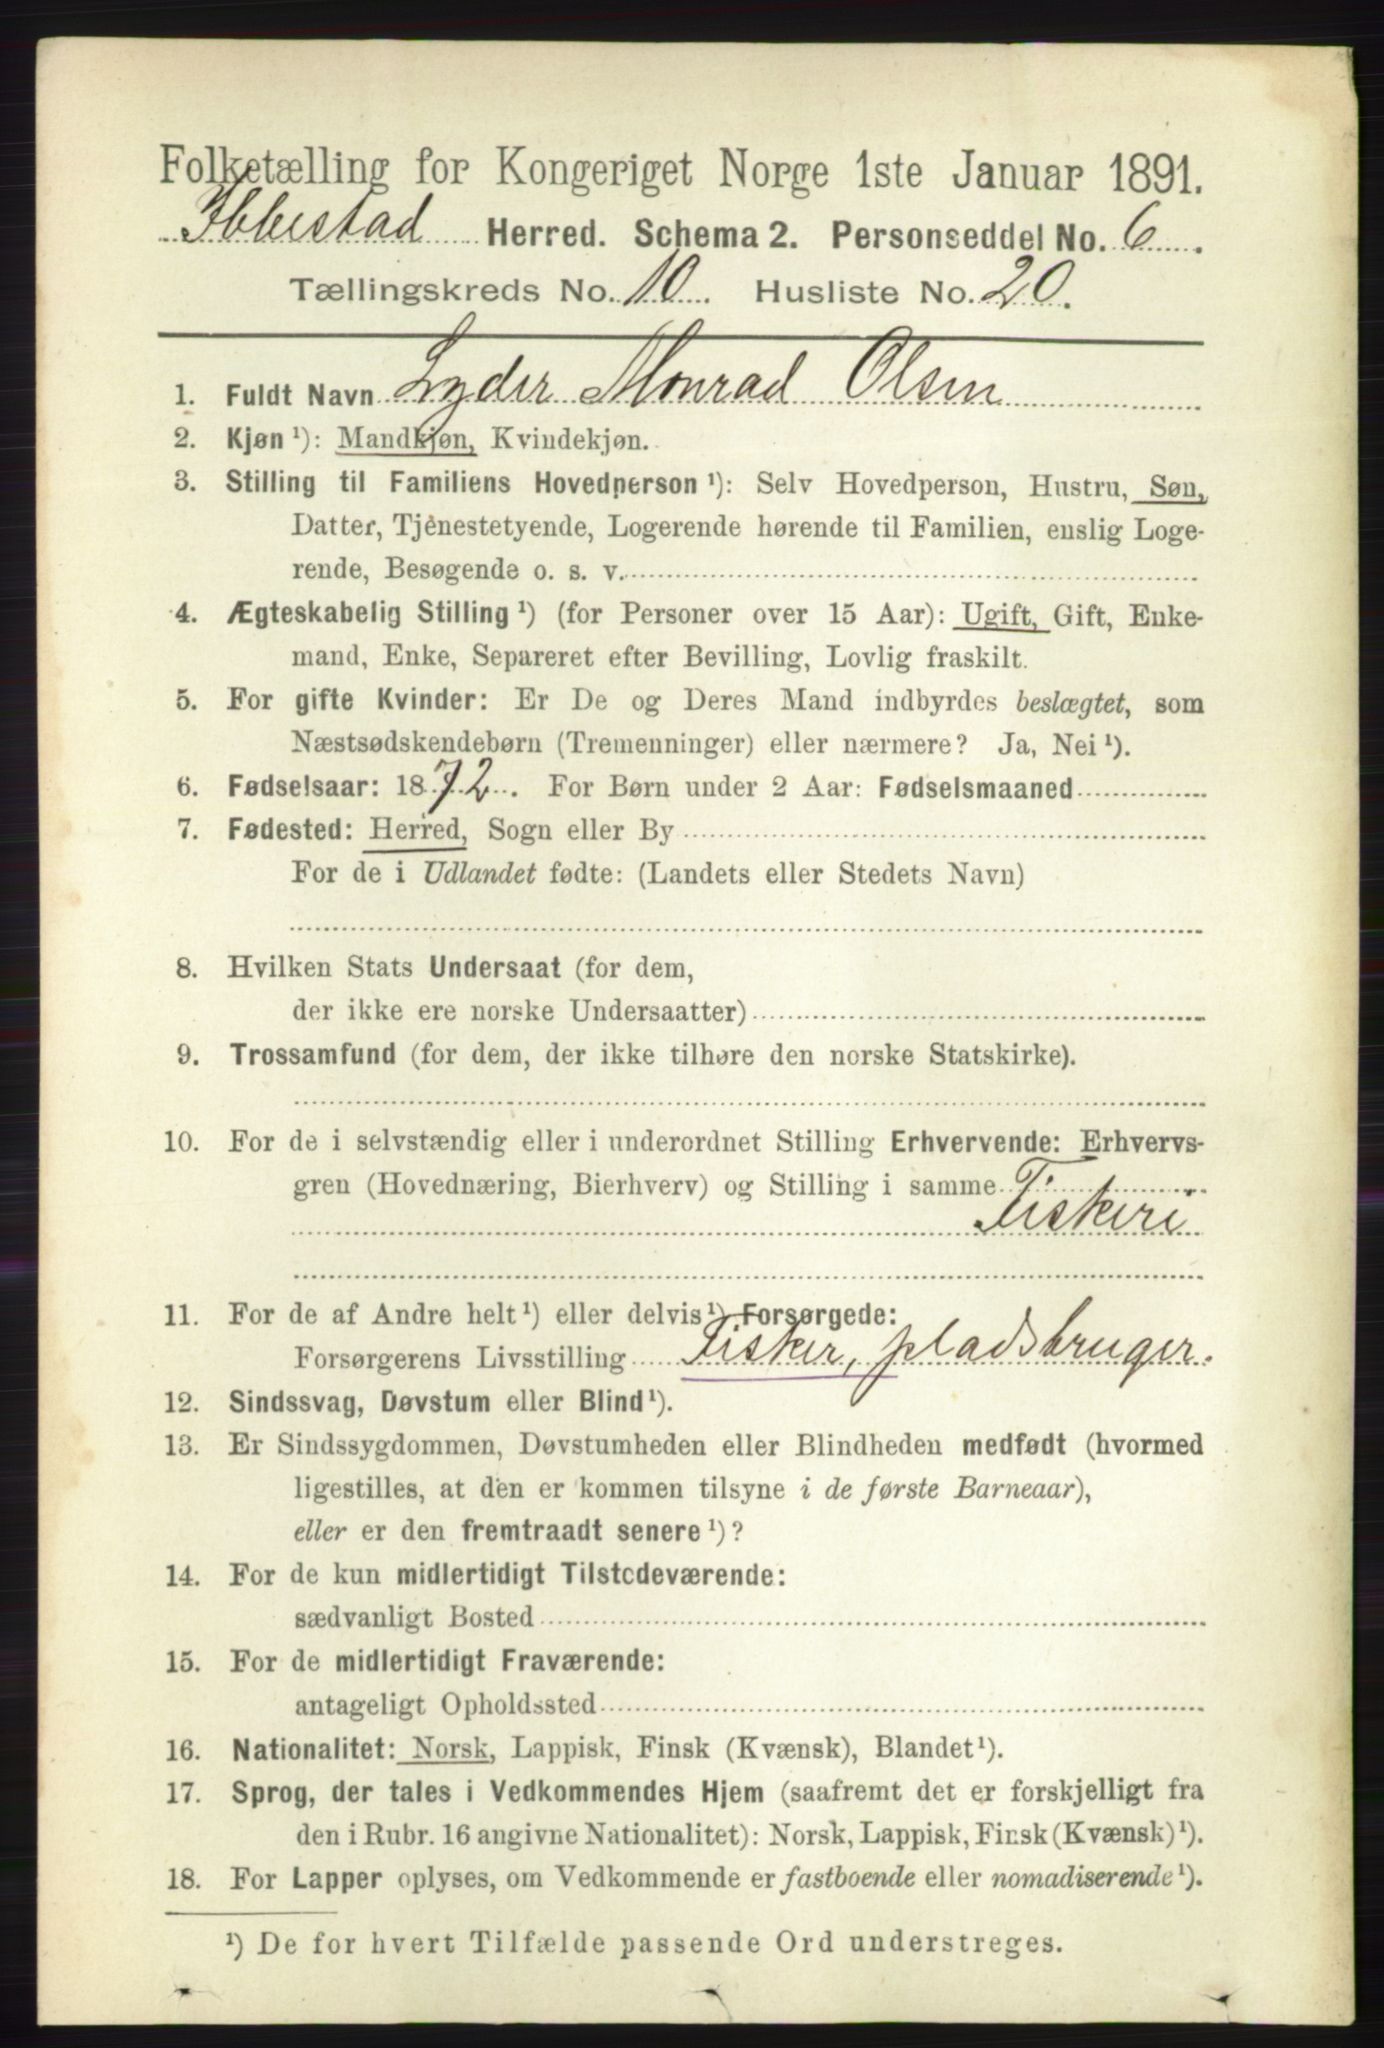 Folketælling for Kongeriget Norge 1ste Januar 1891.
Ibbestad Herred. Schema 2. Personseddel No. 6.
Tællingskreds No. 10. Husliste No. 20.
1. Fuldt Navn Lyder Monrad Olsen
2. Kjøn ¹): Mandkjøn, Kvindekjøn.
3. Stilling til Familiens Hovedperson ¹): Selv Hovedperson, Hustru, Søn,
Datter, Tjenestetyende, Logerende hørende til Familien, enslig Loge-
rende, Besøgende o. s. v.
4. Ægteskabelig Stilling ¹) (for Personer over 15 Aar): Ugift, Gift, Enke-
mand, Enke, Separeret efter Bevilling, Lovlig fraskilt.
5. For gifte Kvinder: Er De og Deres Mand indbyrdes beslægtet, som
Næstsødskendebørn (Tremenninger) eller nærmere? Ja, Nei ¹).
6. Fødselsaar: 1872. For Børn under 2 Aar: Fødselsmaaned
7. Fødested: Herred, Sogn eller By
For de i Udlandet fødte: (Landets eller Stedets Navn)
8. Hvilken Stats Undersaat (for dem,
der ikke ere norske Undersaatter)
9. Trossamfund (for dem, der ikke tilhøre den norske Statskirke).
10. For de i selvstændig eller i underordnet Stilling Erhvervende: Erhvervs-
gren (Hovednæring, Bierhverv) og Stilling i samme
Fiskeri
11. For de af Andre helt ¹) eller delvis ¹) Forsørgede:
Forsørgerens Livsstilling Fisker, pladsbruger.
12. Sindssvag, Døvstum eller Blind ¹).
13. Er Sindssygdommen, Døvstumheden eller Blindheden medfødt (hvormed
ligestilles, at den er kommen tilsyne i de første Barneaar),
eller er den fremtraadt senere ¹)?
14. For de kun midlertidigt Tilstedeværende:
sædvanligt Bosted
15. For de midlertidigt Fraværende:
antageligt Opholdssted
16. Nationalitet: Norsk, Lappisk, Finsk (Kvænsk), Blandet ¹).
17. Sprog, der tales i Vedkommendes Hjem (saafremt det er forskjelligt fra
den i Rubr. 16 angivne Nationalitet): Norsk, Lappisk, Finsk (Kvænsk) ¹).
18. For Lapper oplyses, om Vedkommende er fastboende eller nomadiserende ¹).
¹) De for hvert Tilfælde passende Ord understreges.